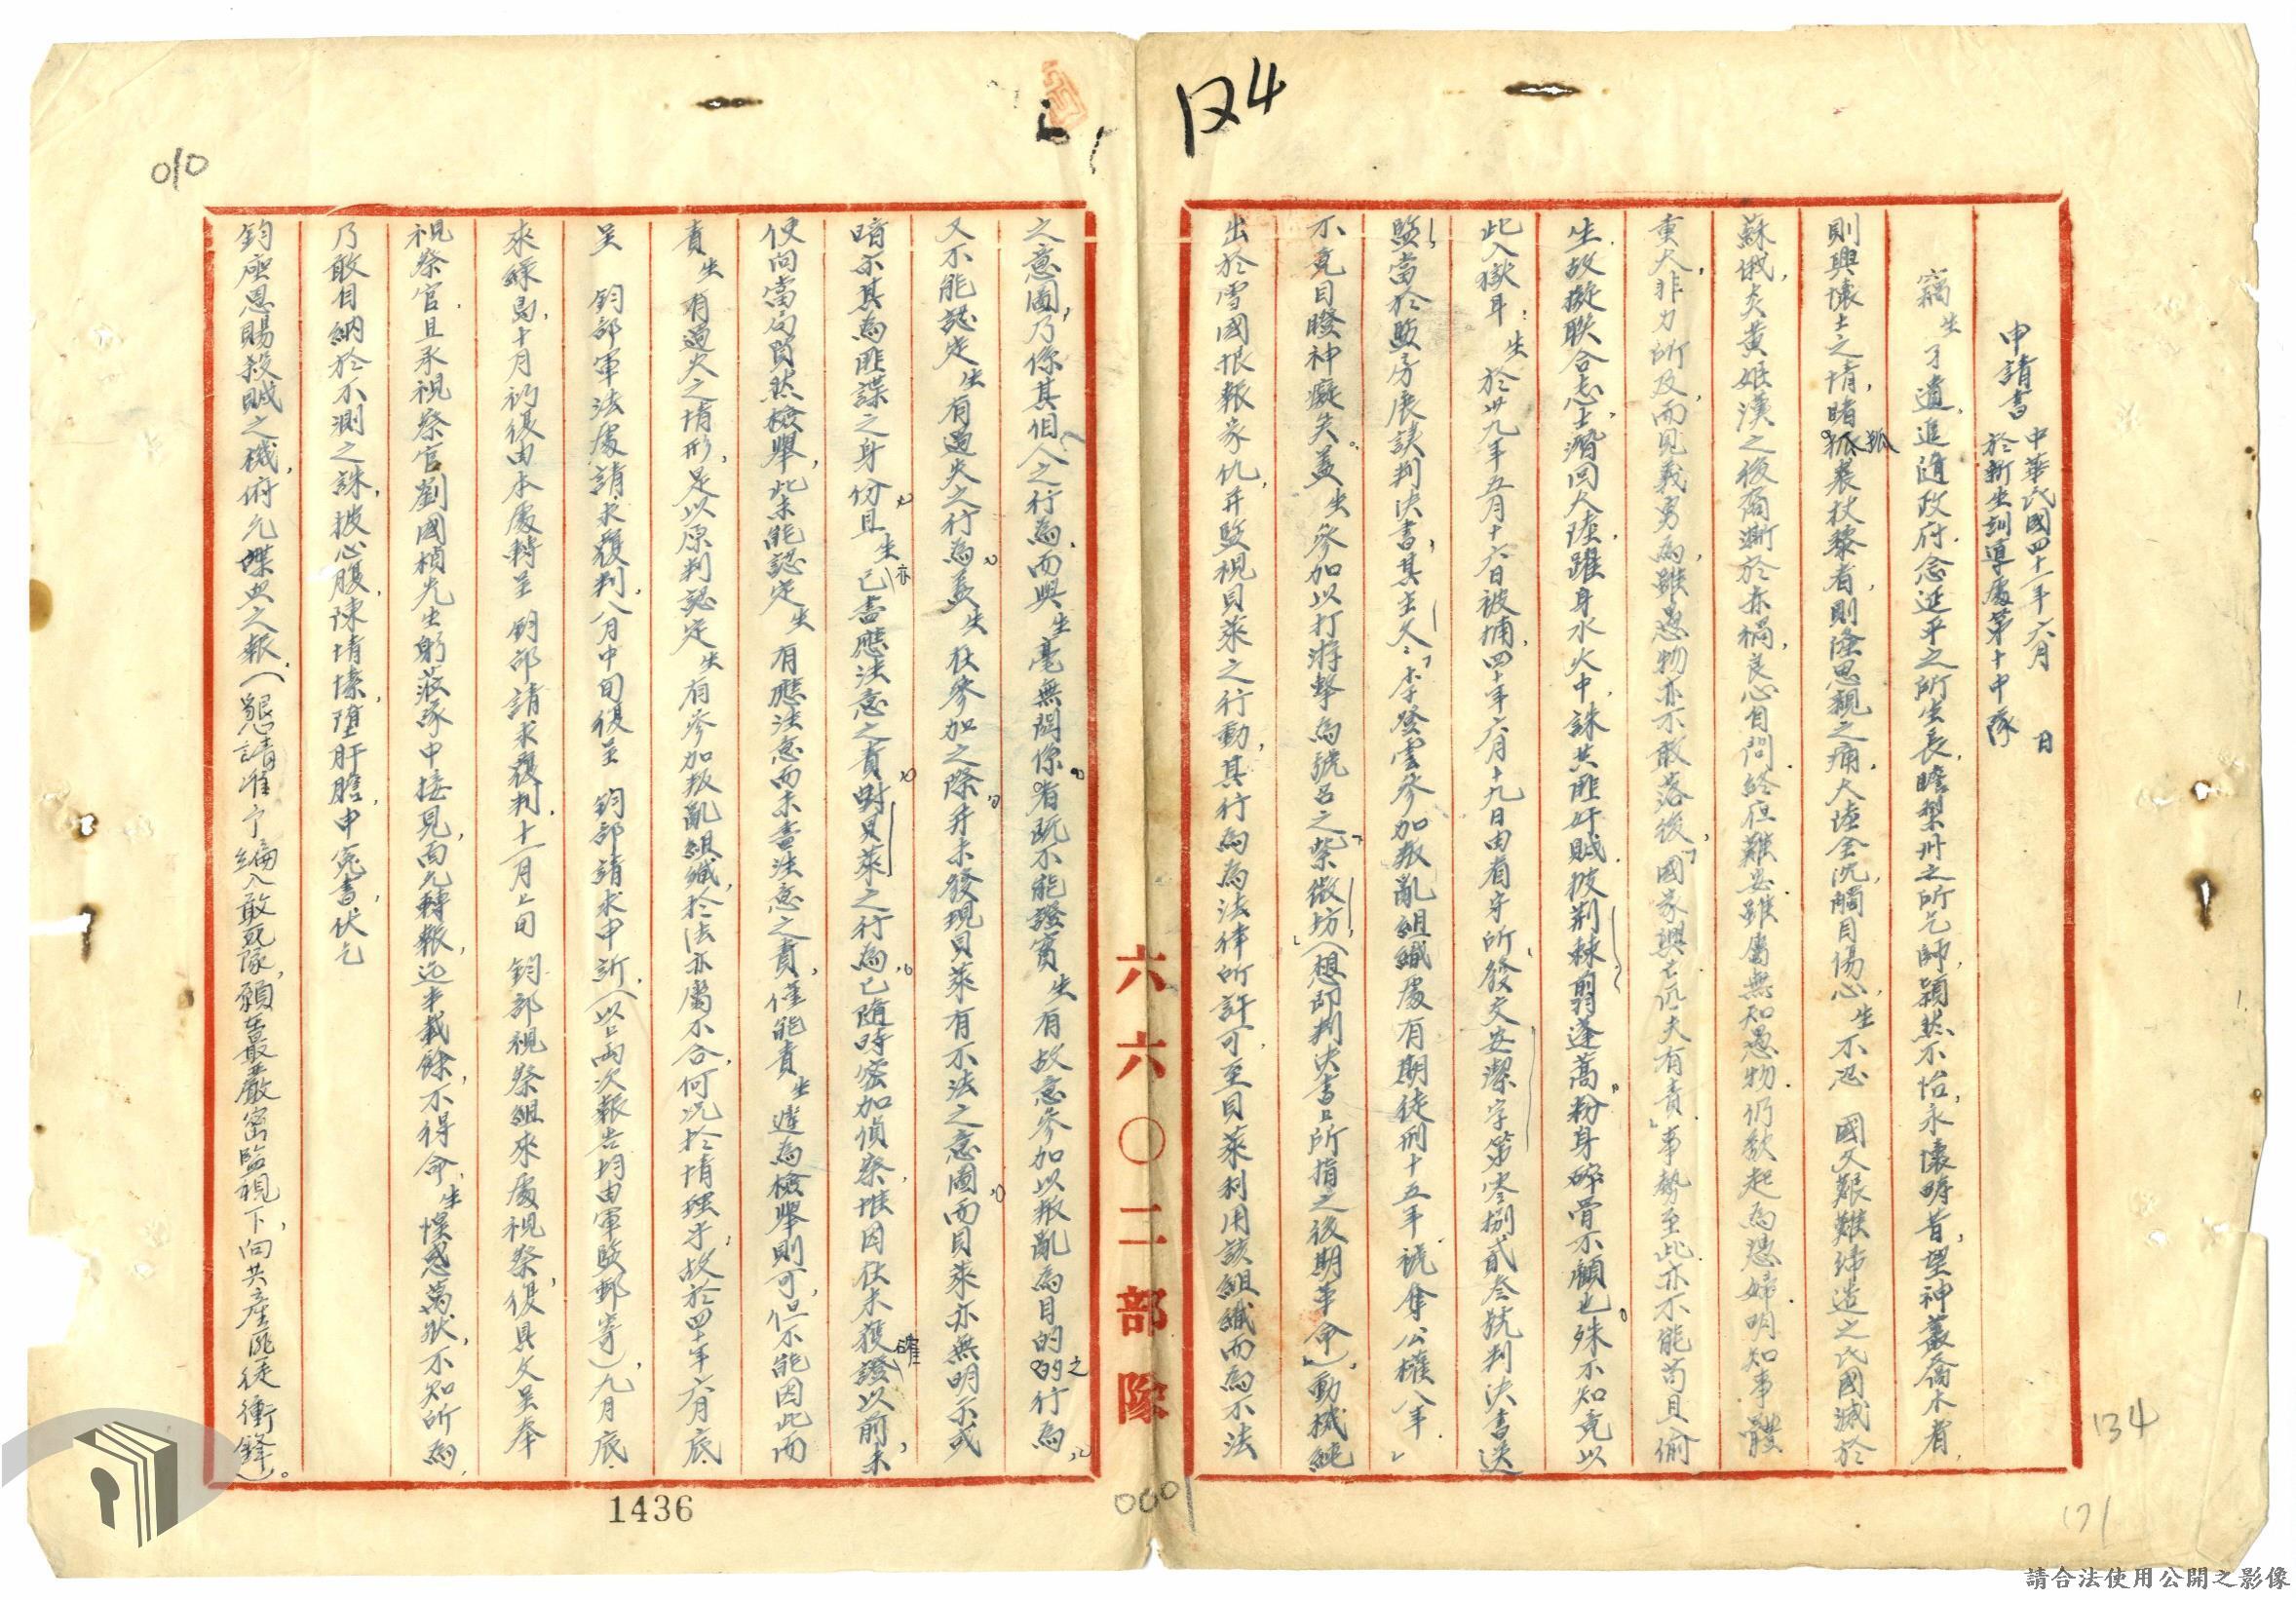 134
申請書 中華民國四十一年六月 日
於新生訓導處第十中隊
竊生才遺，追隨政府，念延平之所生長，瞻梨洲之所乞師，穎然不怡，永懷疇昔，望神叢喬木者，
則興懷土之情，睹狐裘杖藜者，則隆思親之痛，大陸全沉，觸目傷心，生不忍 國父艱難締造之民國滅於
蘇俄，炎黃姬漢之後裔斬於赤禍，良心自問，終怛難安，雖屬無知愚物，仍欲起為愚婦，明知事體
重大，非力所及，而見義勇為，雖愚物亦不敢落後，「國家興亡，匹夫有責」，事勢至此，亦不能苟且偷
生，故擬聯合志士，潛回大陸，躍身水火中，誅共匪奸賊，披荆棘，翦蓬蒿，粉身碎骨不顧也，殊不知竟以
此入獄耳：生於卅九年五月十六日被捕，四十年六月十九日由看守所發交安潔字第零捌貳叁號判決書送
監，當於監房展讀判決書，其主文：「李登雲參加叛亂組織處有期徒刑十五年褫奪公權八年。」
不竟目瞪神癡矣。蓋生參加以打游擊為號召之「柴微坊」（想即判決書上所指之後期革命），動機純
出於雪國恨報家仇，并監視貝萊之行動，其行為為法律所許可，至貝萊利用該組織而為不法
之意圖，乃係其個人之行為，而與生毫無關係者，既不能證實生有故意參加以叛亂為目的之行為，
又不能認定生有過失之行為，蓋生在參加之際，并未發現貝萊有不法之意圖，而貝萊亦無明示或
暗示其為匪諜之身份，且生亦已盡應注意之責，對貝萊之行為，已隨時密加偵察，惟因在未獲確證以前，未
便向當局貿然檢舉，此未能認定生有應注意而未盡注意之責，僅能責生遲為檢舉則可，但不能因此而
責生有過失之情形，是以原判認定生有參加叛亂組織，於法亦屬不合，何況於情理乎，故於四十年六月底
呈 鈞部軍法處請求覆判，八月中旬復呈 鈞部請求申訴，（以上兩次報告均由軍監郵寄），九月底
來綠島，十月初復由本處轉呈 鈞部請求覆判，十一月上旬 鈞部視察組來處視察，復具文呈奉
視察官，且承視察官劉國楨先生躬蒞隊中接見，面允轉報，迄半載餘，不得命，生惶惑萬狀，不知所為，
乃敢自納於不測之誅，披心腹，陳情愫，墮肝膽，申冤書，伏乞
鈞座恩賜殺賊之機，俯允喋血之報，（懇請准予編入敢死隊，願在最嚴密監視下，向共產匪徒衝鋒）。
六六〇二部隊
1436
010
0001
134
171
請合法使用公開之影像